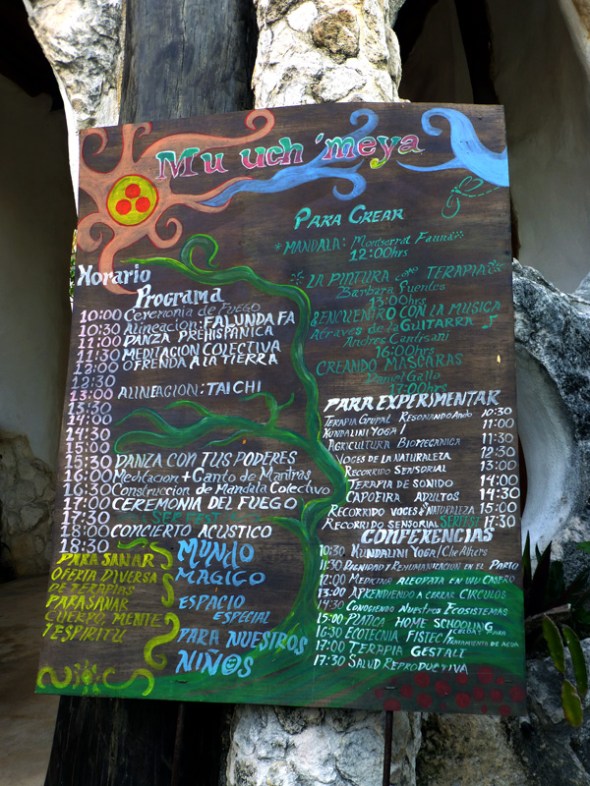 Mu uch'meya
Horario
Programa
10:00 Ceremonia de Fuego
10:30 Alineacion: FALUNDAFA
11:00 DANZA PREHISPANICA
11:30 MEDITACION COLECTIVA
12:00 OFRENDA A LA TIERRA
12:30
13:00 ALINEACION: TAI CHI
13:30
14:00
14:30
15:00
15:30 DANZA CON TUS PODERES
16:00 Meditacion + Canto de Mantras
16:30 Construccion de Mandala Colectivo
17:00 CEREMONIA DEL FUEGO
17:30
18:00 CONCIERTO ACUSTICO
18:30
PARA SANAR
OFERTA DIVERSA
DE TERAPIAS
PARA SANAR
CUERPO, MENTE
Y ESPIRITU
MUNDO
MAGICO
ESPACIO
ESPECIAL
PARA NUESTROS
NIÑOS
PARA CREAR
MANDALA: Montserrat
12:00hrs
LA PINTURA como TERAPIA
Barbara Fuentes
13:00hrs
ENCUENTRO CON LA MUSICA
Atraves de la GUITARRA
Andres Cantisani
16:00hrs
CREANDO MASCARAS
Daniel Gallo
17:00hrs
PARA EXPERIMENTAR
TERAPIA GRUPAL RESONANDO 10:30
KUNDALINI YOGA 11:00
AGRICULTURA 11:30
VOCES DE LA NATURALEZA 12:30
RECORRIDO SENSORIAL 13:00
TERAPIA DE SONIDO 14:00
CAPOEIRA ADULTOS 14:30
RECORRIDO VOCES NATURALEZA 15:00
RECORRIDO SENSORIAL 17:30
CONFERENCIAS
10:30 KUNDALINI YOGA/
11:30 DIGNIDAD Y EN EL PARTO
12:00 MEDICINA
13:00 APRENDIENDO A CERRAR CIRCULOS
14:30 CONOCIENDO NUESTROS ECOSISTEMAS
15:00 PLATICA HOME SCHOOLING
16:30 ECOTECNIA FISTEC/ TRATAMIENTO DE AGUA
17:00 TERAPIA GESTALT
17:30 SALUD REPRODUCTIVA